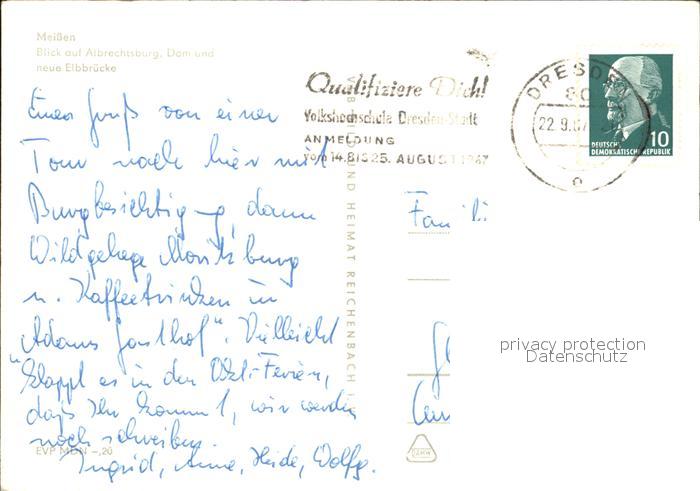 Meißen
Blick auf Albrechtsburg, Dom und
neue Elbbrücke
Qualifiziere Dich!
Volkshochschule Dresden-Stadt
ANMELDUNG
vom 14. BIS 25. AUGUST 1967
DRESDEN
80
22.9.67
DEUTSCHE
DEMOKRATISCHE REPUBLIK
10
Einen Gruß von einer
Tour nach hier mit
Burgbesichtigung, dann
Wildgehege Moritzburg
u. Kaffeetrinken in
„Adams Gasthof". Vielleicht
klappt es in den Okt.-Ferien,
daß Ihr kommt, wir werden
noch schreiben.
Ingrid, Anne, Heide, Wolfg.
UND HEIMAT REICHENBACH
Fam
EVP MDN -,20
privacy protection
Datenschutz